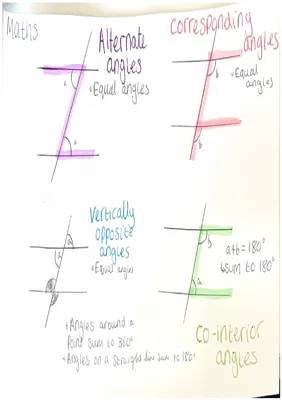 Maths
Alternate
angles
• Equal angles
a
a
Corresponding
angles
• Equal
angles
b
b
Vertically
opposite
angles
• Equal angles
a
a
• Angles around a
point sum to 360°
• Angles on a straight line sum to 180°
a+b = 180°
↳ sum to 180°
b
a
Co-interior
angles